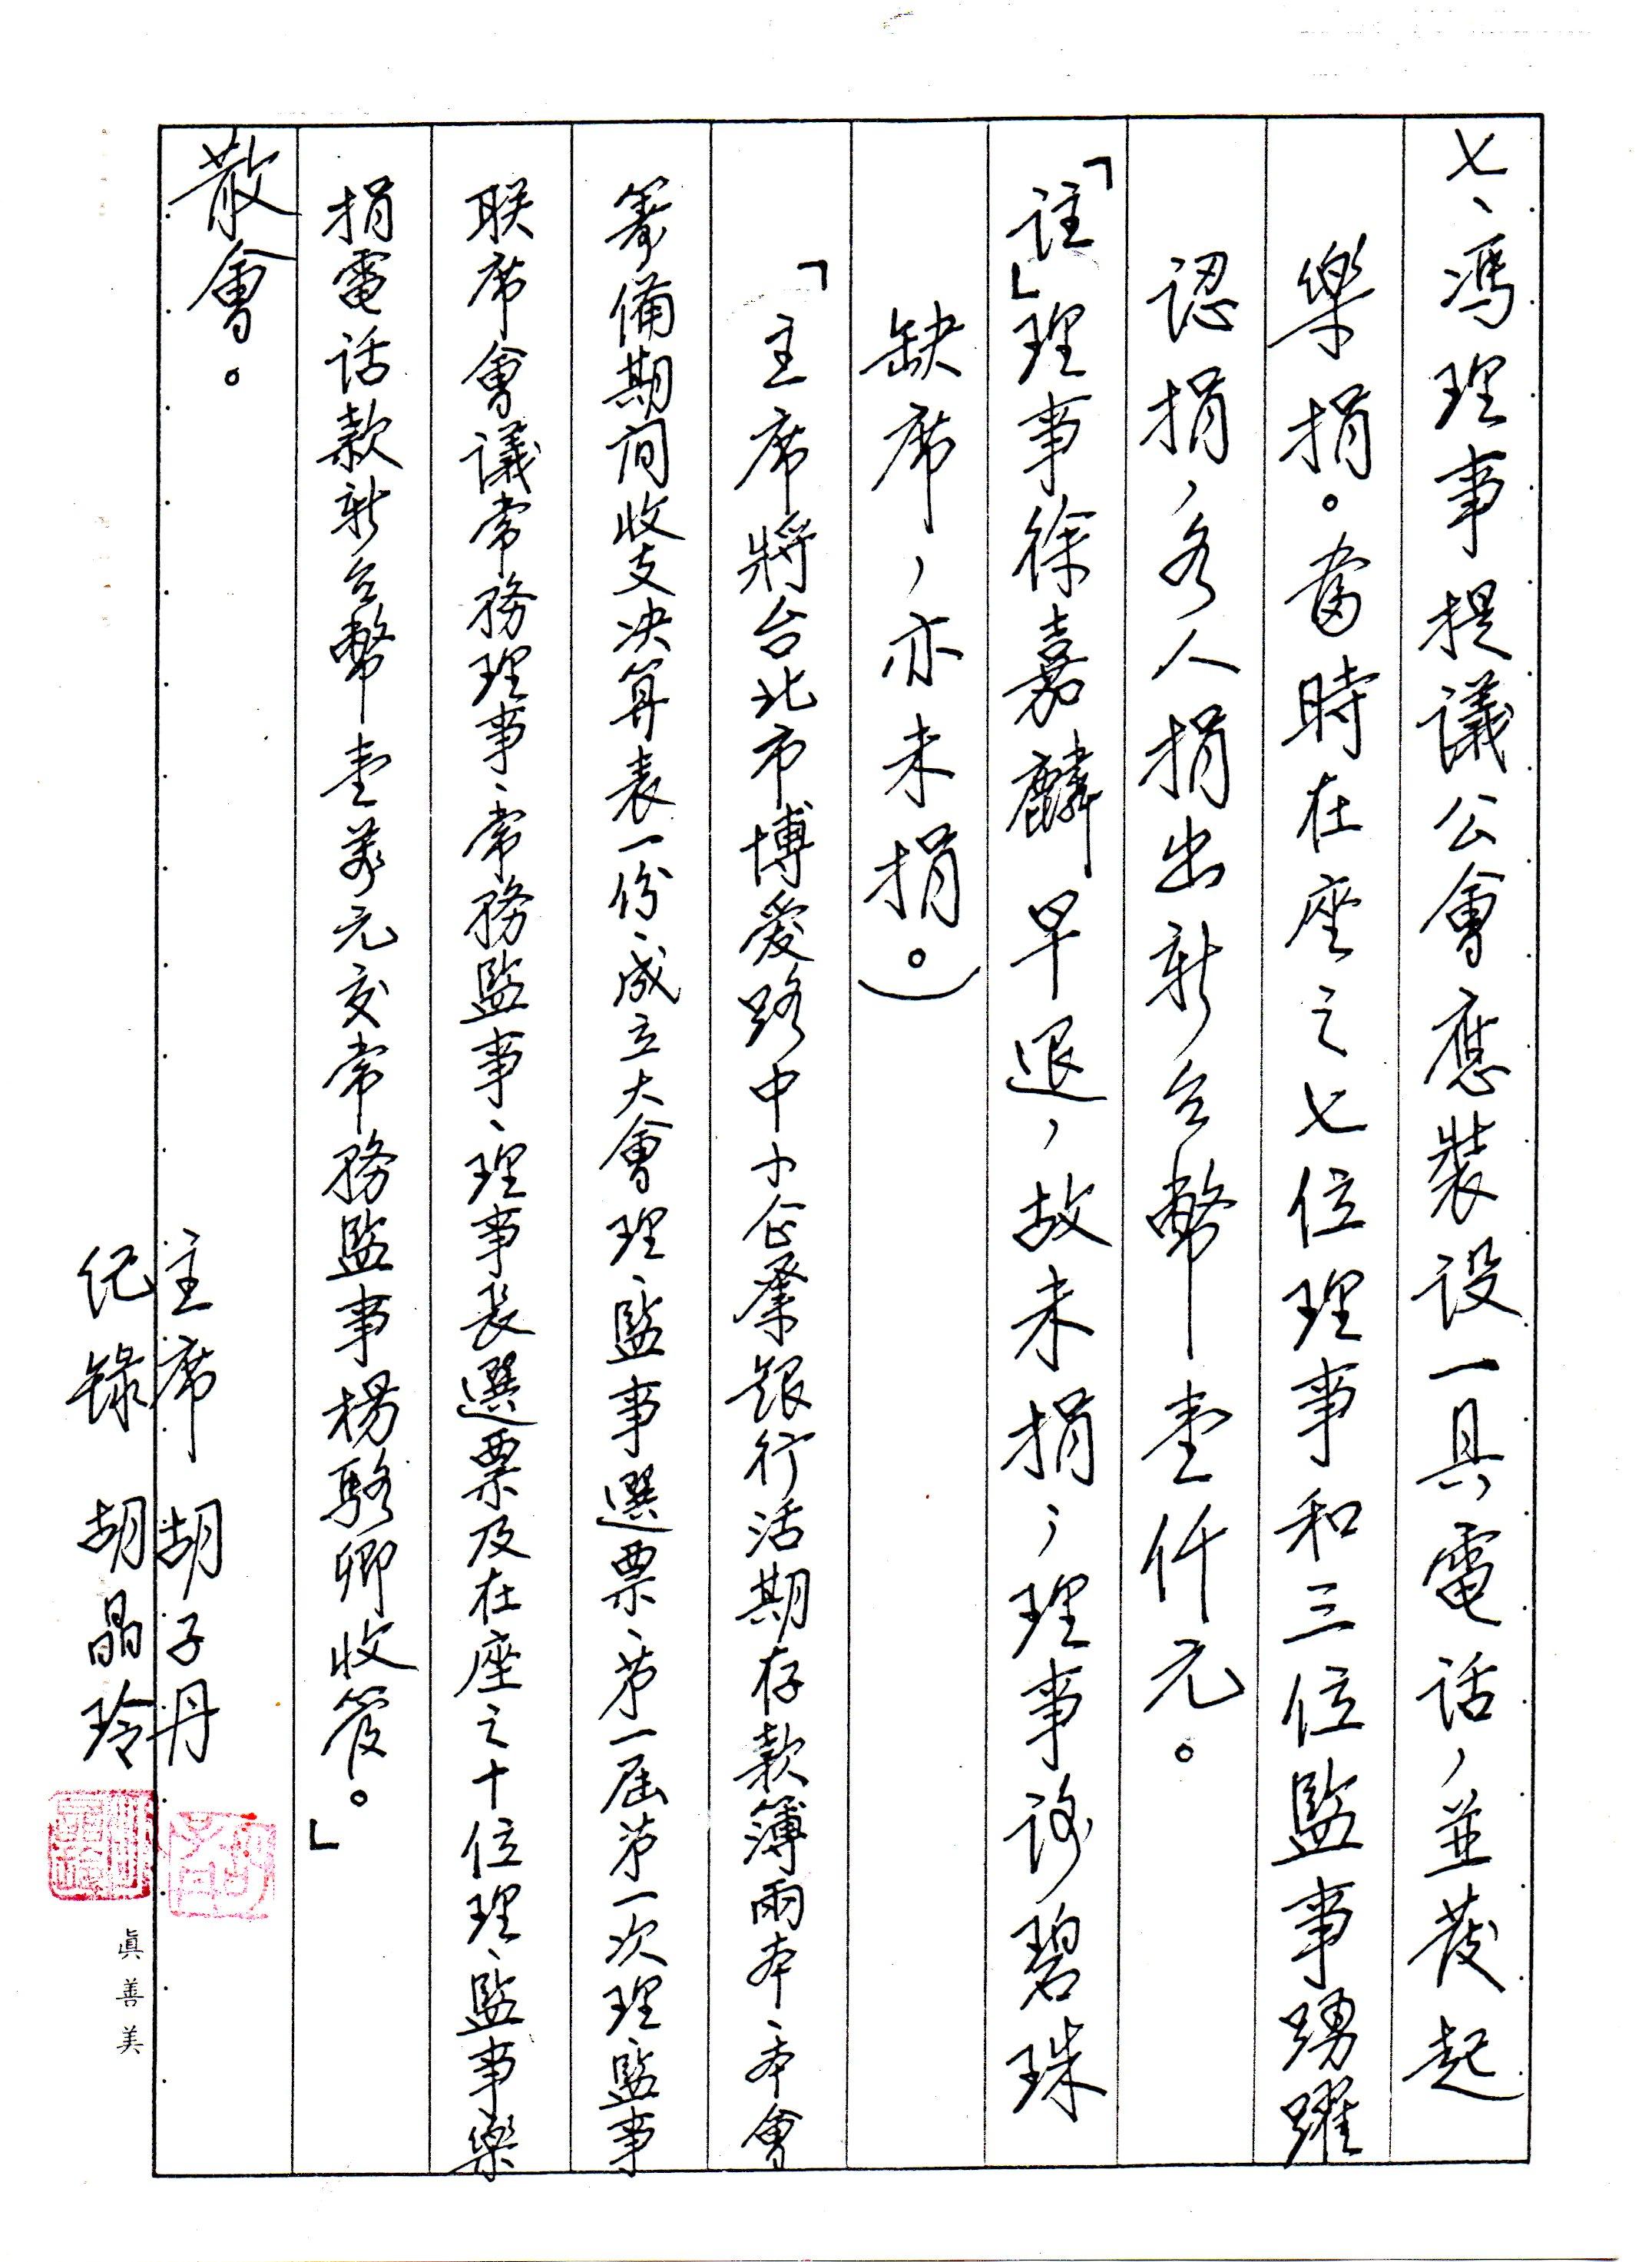 七、馮理事提議公會應裝設一具電話，並發起
樂捐。當時在座之七位理事和三位監事踴躍
認捐，各人捐出新台幣壹仟元。
「註」理事徐嘉麟早退，故未捐；理事
碧珠
缺席，亦未捐。）
「主席將台北市博愛路中小企業銀行活期存款簿兩本、本會
籌備期间收支决算表一份、成立大會理、監事選票、第一屆第一次理、監事
联席會議常務理事、常務監事、理事長選票及在座之十位理、監事樂
捐電话款新台幣壹萬元交常務監事楊駱卿收管。」
散會。
主席 胡子丹
纪錄 胡晶玲
眞善美